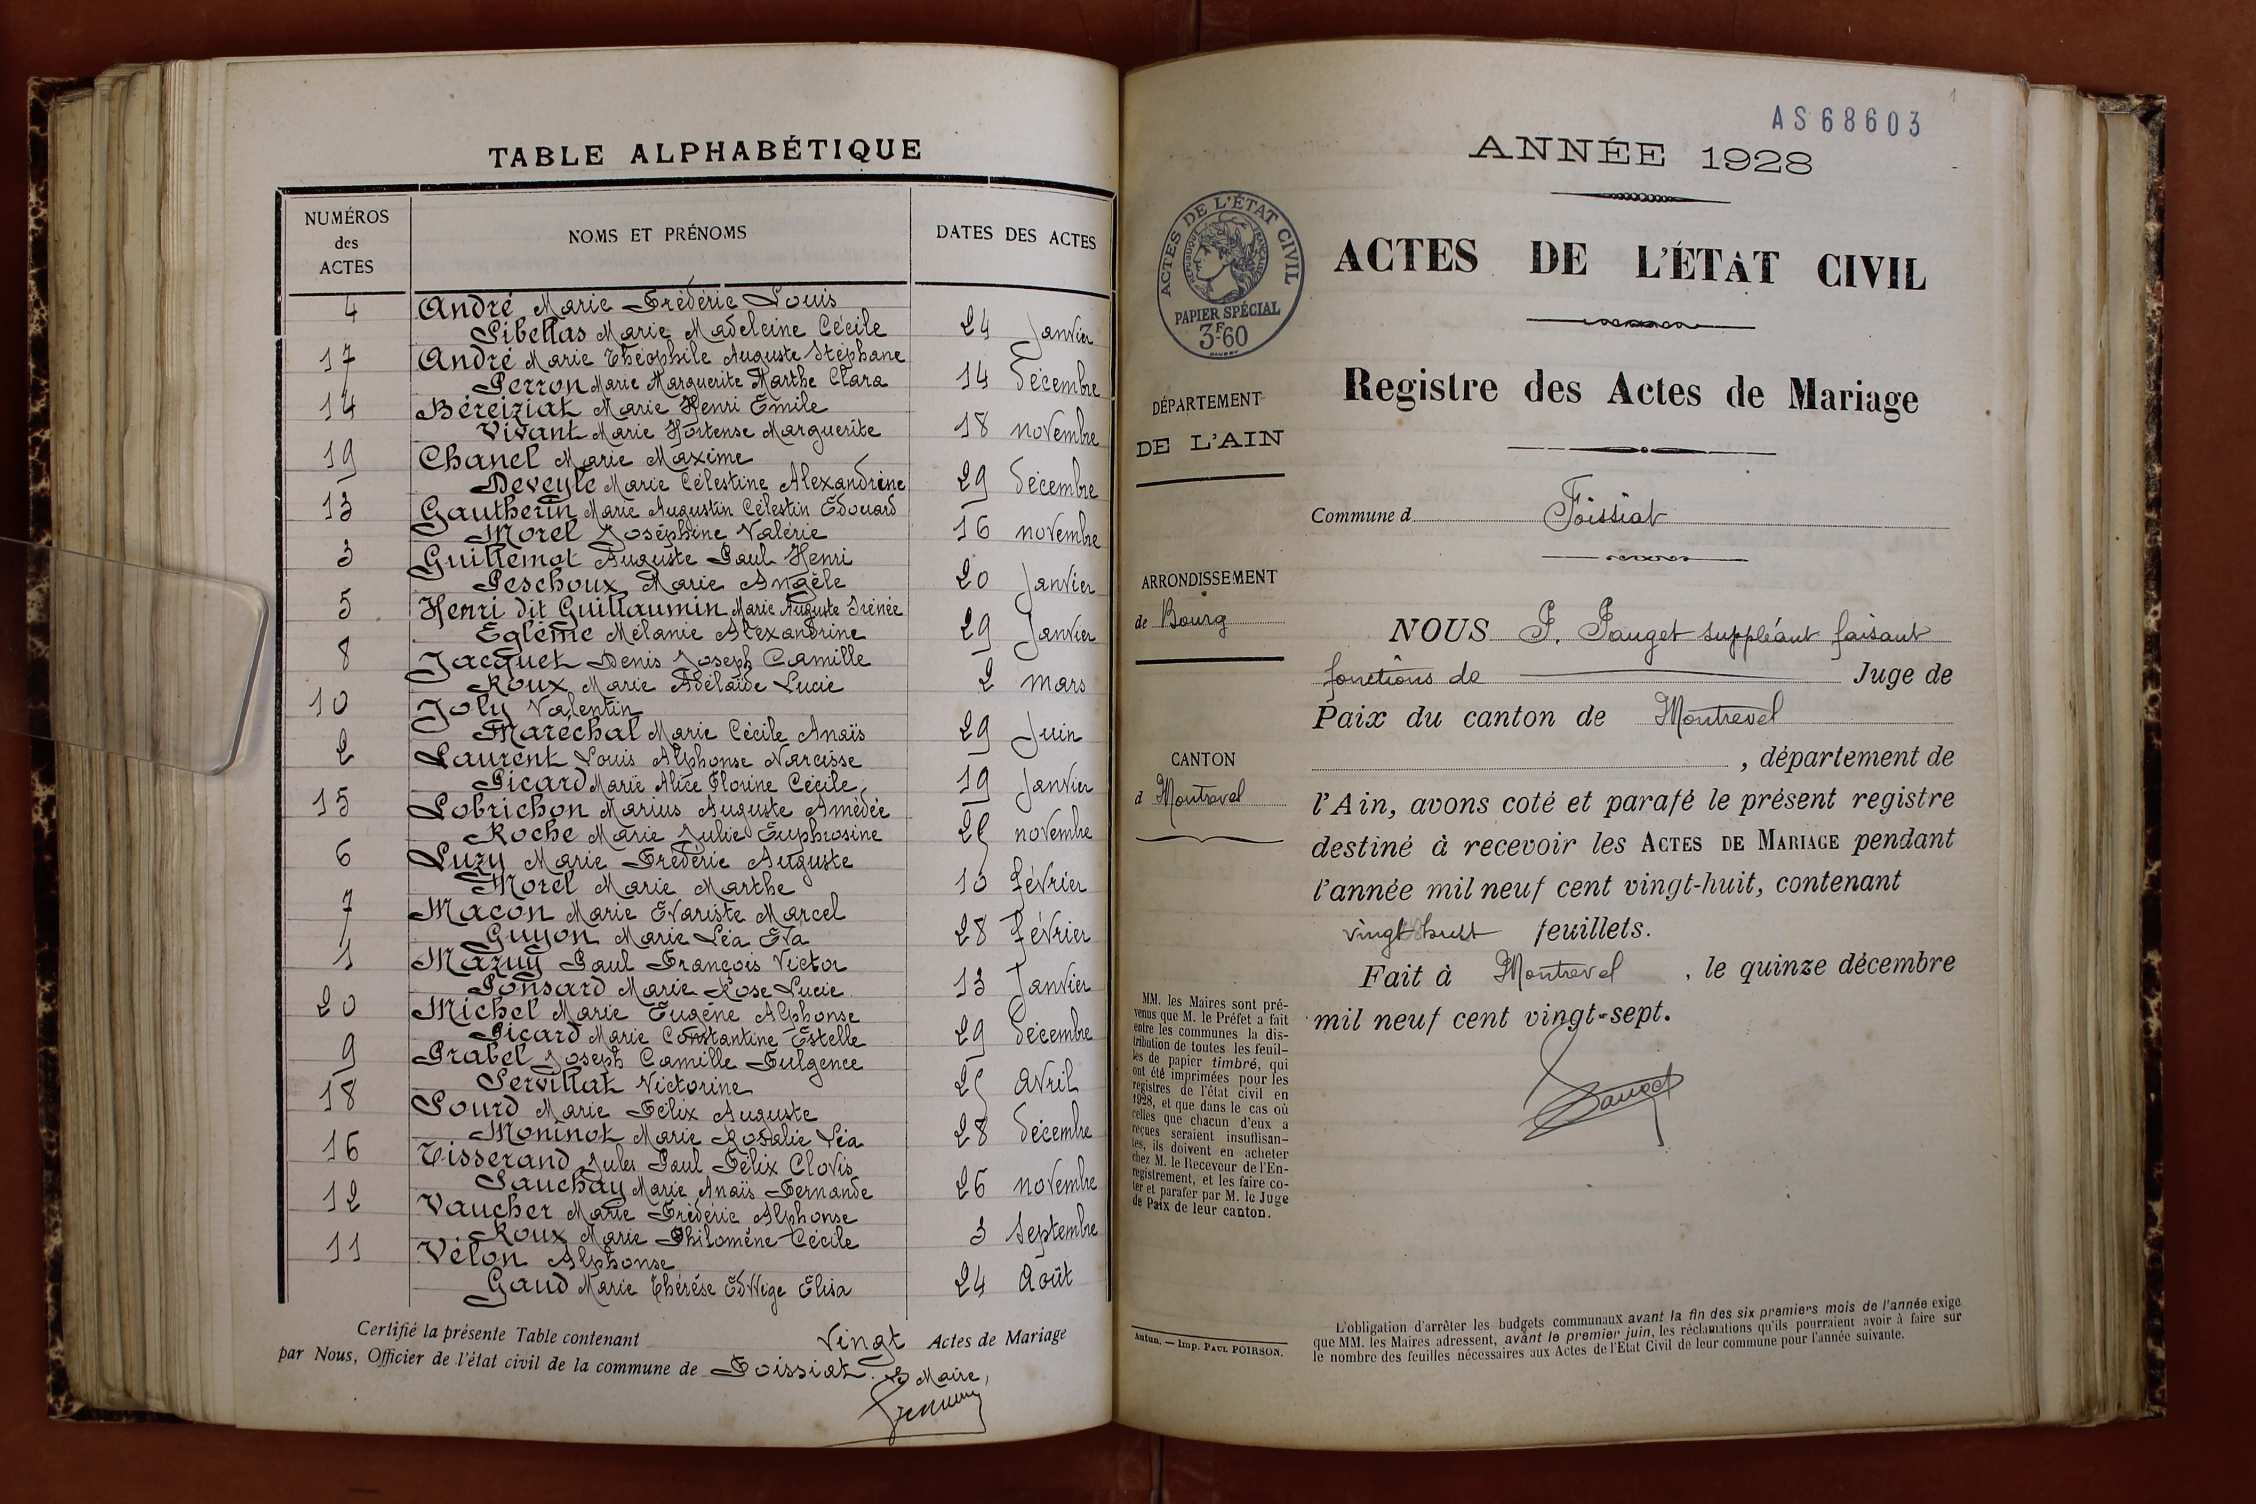 TABLE ALPHABÉTIQUE
NUMÉROS des ACTES
NOMS ET PRÉNOMS
DATES DES ACTES
4 André Marie Frédéric Louis
Pibellas Marie Madeleine Cécile 24 Janvier
17 André Marie Théophile Auguste Stéphane
Perron Marie Marguerite Marthe Clara 14 Décembre
14 Béreiziat Marie Henri Emile
Vivant Marie Hortense Marguerite 18 novembre
19 Chanel Marie Maxime
Deveyle Marie Célestine Alexandrine 29 décembre
13 Gautherin Marie Augustin Célestin Edouard
Morel Joséphine Valérie 16 novembre
3 Guillemot Auguste Paul Henri
Peschoux Marie Angèle 20 Janvier
5 Henri dit Guillaumin Marie Auguste Irénée
Egléme Mélanie Alexandrine 29 Janvier
8 Jacquet Denis Joseph Camille
Roux Marie Adélaïde Lucie 2 mars
10 Joly Valentin
Maréchal Marie Cécile Anaïs 29 Juin
2 Laurent Louis Alphonse Narcisse
Picard Marie Alice Florine Cécile 19 Janvier
15 Lobrichon Marius Auguste Amédée
Roche Marie Julie Euphrosine 25 novembre
6 Luzy Marie Frédéric Auguste
Morel Marie Marthe 10 février
7 Macon Marie Evariste Marcel
Guyon Marie Léa Eva 28 Février
1 Mazuy Paul François Victor
Ponsard Marie Rose Lucie 13 Janvier
20 Michel Marie Eugène Alphonse
Picard Marie Constantine Estelle 29 décembre
9 Prabel Joseph Camille Fulgence
Servillat Victorine 25 avril
18 Sourd Marie Félix Auguste
Moninot Marie Rosalie Léa 28 décembre
16 Tisserand Jules Paul Félix Clovis
Sauchay Marie Anaïs Fernande 26 novembre
12 Vaucher Marie Frédéric Alphonse
Roux Marie Philomène Cécile 3 Septembre
11 Vélon Alphonse
Gaud Marie Thérèse Edwige Elisa 24 Août
Certifié la présente Table contenant Vingt Actes de Mariage
par Nous, Officier de l'état civil de la commune de Foissiat. Le Maire,
1
AS68603
ANNÉE 1928
ACTES DE L'ÉTAT CIVIL
RÉPUBLIQUE FRANÇAISE
PAPIER SPÉCIAL
3F60
ACTES DE L'ÉTAT CIVIL
Registre des Actes de Mariage
DÉPARTEMENT
DE L'AIN
Commune d Foissiat
ARRONDISSEMENT
de Bourg
CANTON
d Montrevel
NOUS P. Pauget suppléant faisant
fonctions de Juge de
Paix du canton de Montrevel
, département de
l'Ain, avons coté et parafé le présent registre
destiné à recevoir les ACTES DE MARIAGE pendant
l'année mil neuf cent vingt-huit, contenant
vingt huit feuillets.
Fait à Montrevel, le quinze décembre
mil neuf cent vingt-sept.
Pauget
MM. les Maires sont pré-
venus que M. le Préfet a fait
entre les communes la dis-
tribution de toutes les feuil-
les de papier timbré, qui
ont été imprimées pour les
registres de l'état civil en
1928, et que dans le cas où
celles que chacun d'eux a
reçues seraient insuffisan-
tes, ils doivent en acheter
chez M. le Receveur de l'En-
registrement, et les faire co-
ter et parafer par M. le Juge
de Paix de leur canton.
Autun. — Imp. PAUL POIRSON.
L'obligation d'arrêter les budgets communaux avant la fin des six premiers mois de l'année exige
que MM. les Maires adressent, avant le premier juin, les réclamations qu'ils pourraient avoir à faire sur
le nombre des feuilles nécessaires aux Actes de l'Etat Civil de leur commune pour l'année suivante.